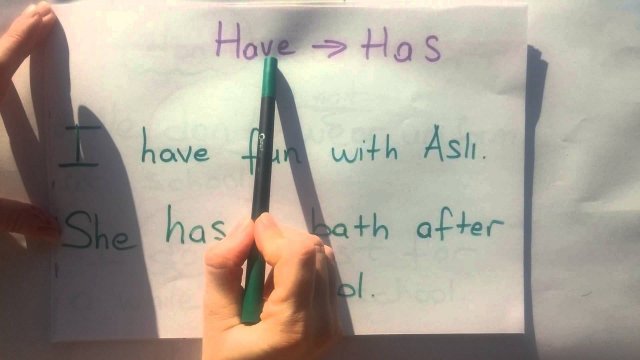 Have → Has
I have fun with Aslı.
She has bath after
ol.